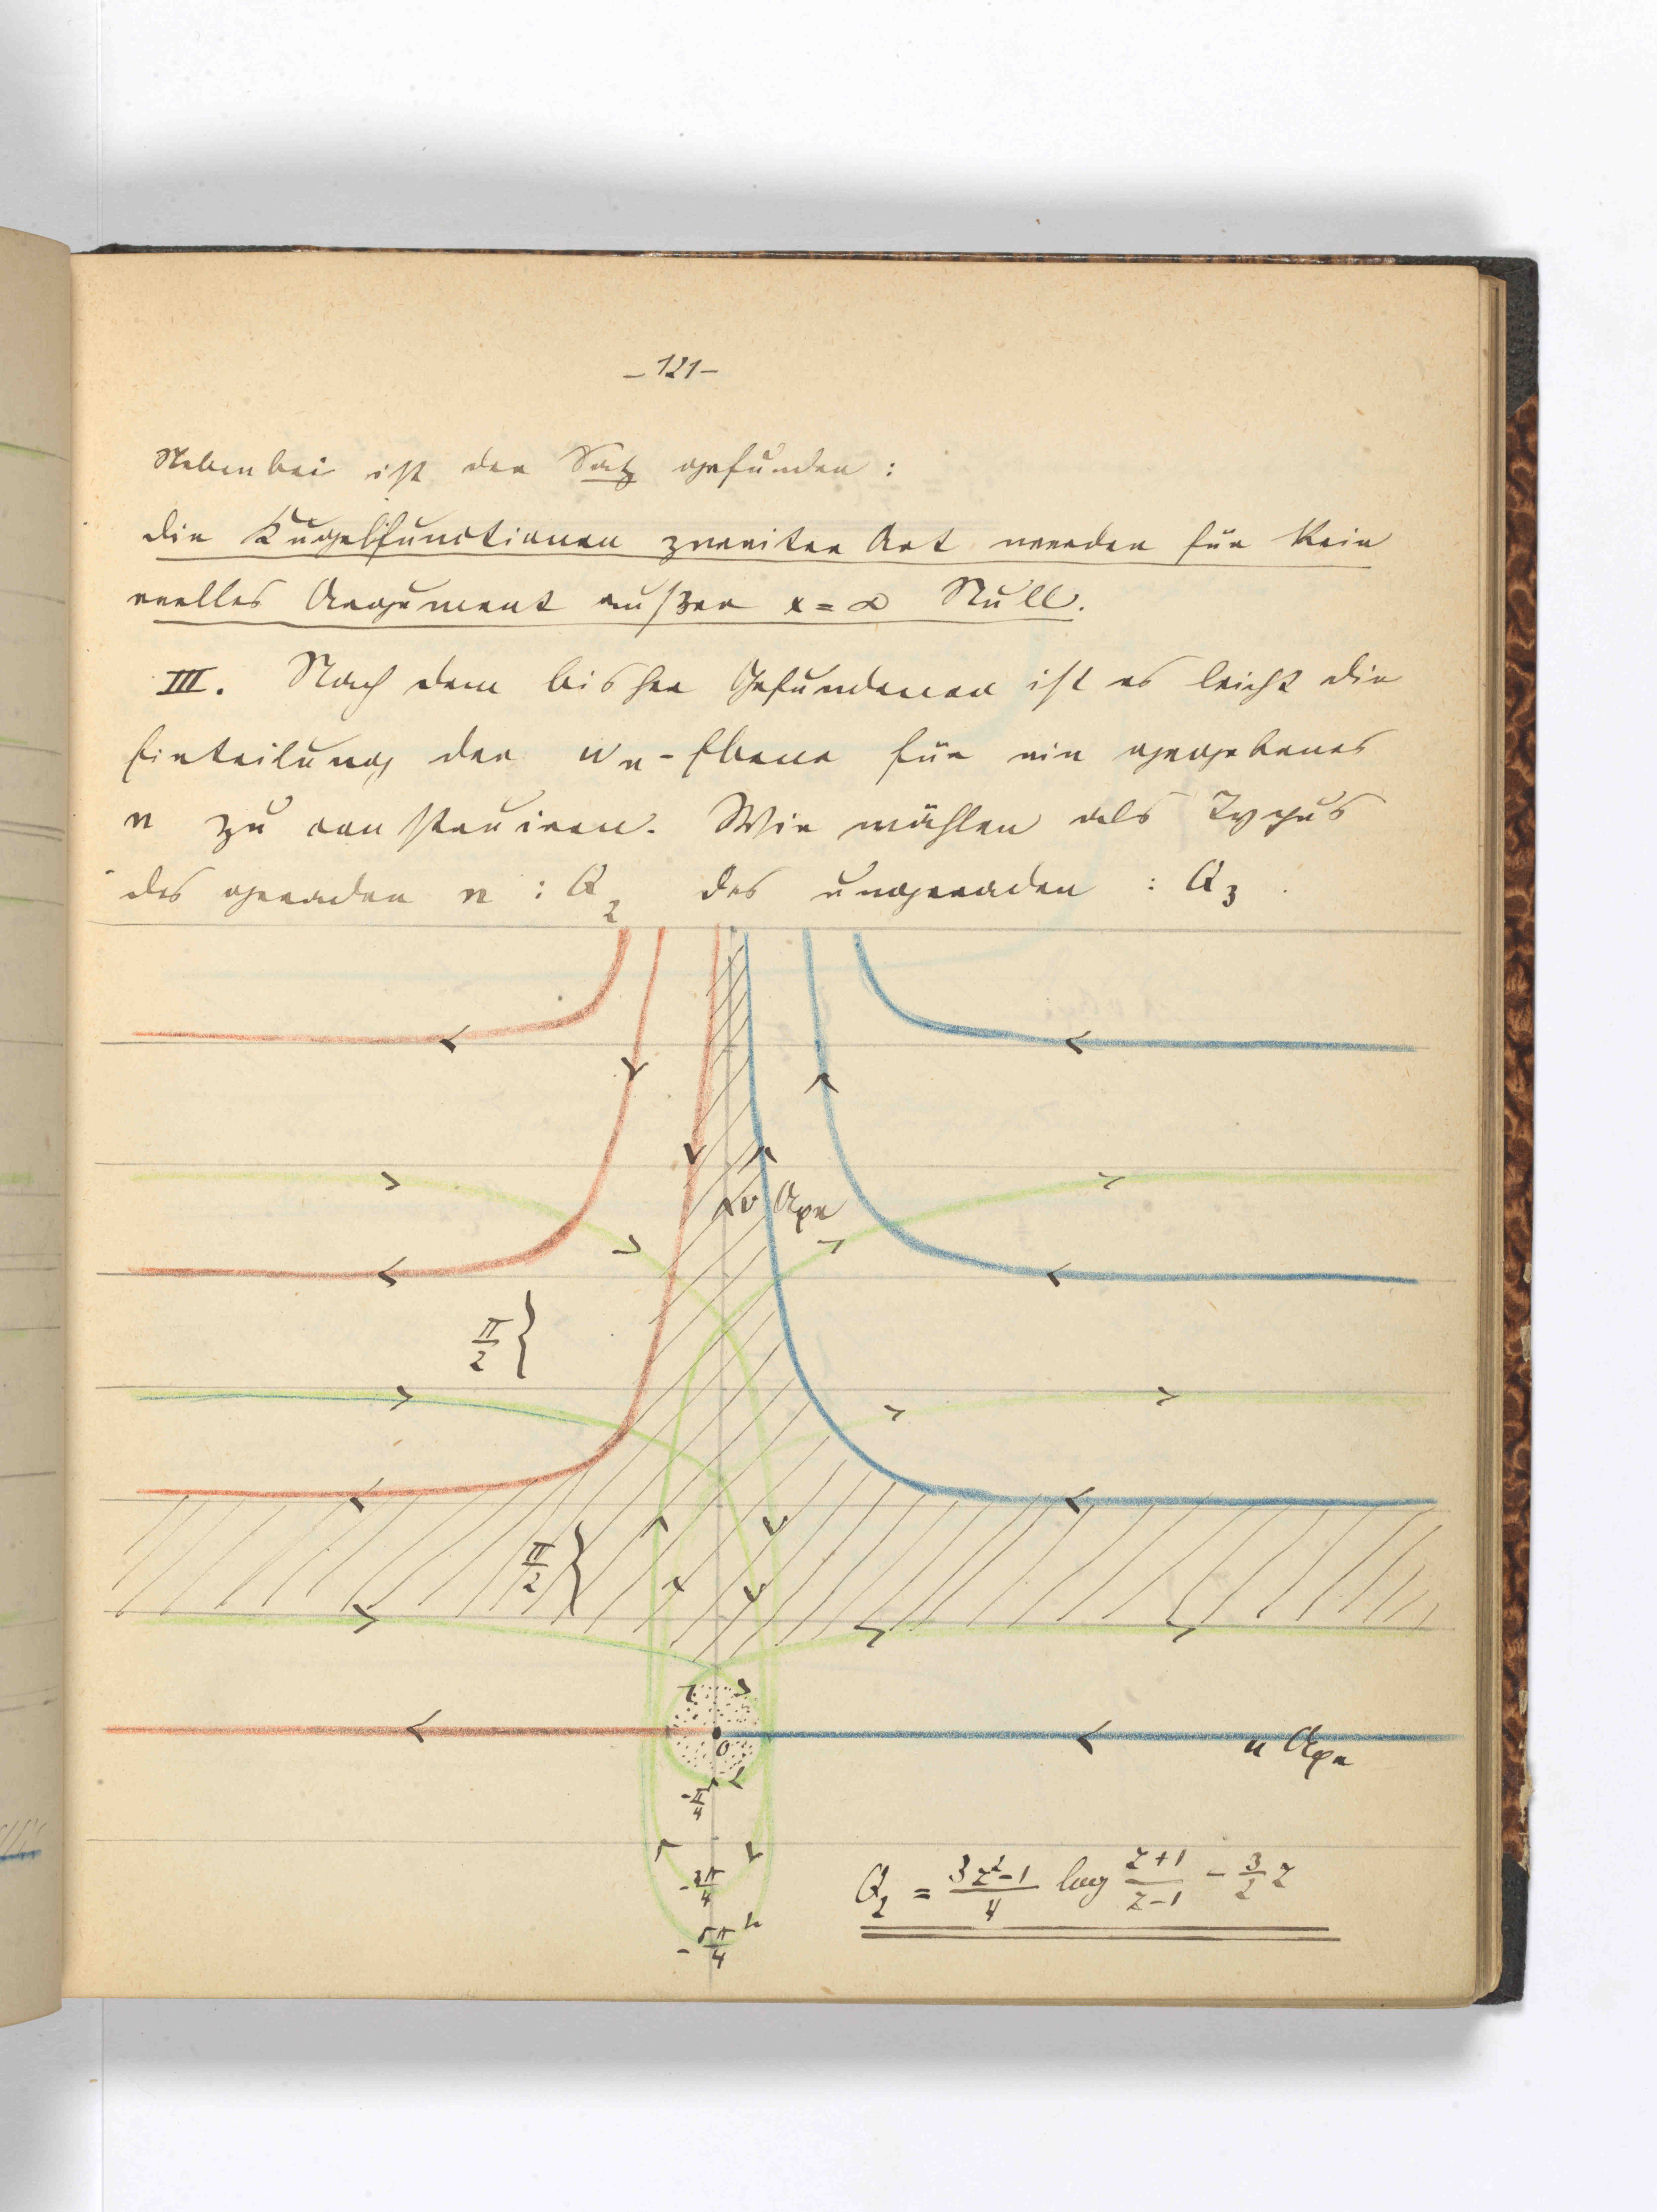 – 121 –
Nebenbei ist der Satz gefunden :
die Kugelfunctionen zweiter Art werden für kein
reelles Argument außer x = ∞ Null.
III. Nach dem bisher Gefundenen ist es leicht die
Einteilung der w_n-Ebene für ein gegebenes
n zu construiren. Wir wählen als Typus
des geraden n : Q_2 des ungeraden : Q_3 .
v Axe
π/2 {
π/2 {
0
u Axe
-π/4
-3π/4
-5π/4
Q_2 = (3z²-1)/4 log (z+1)/(z-1) - 3/2 z